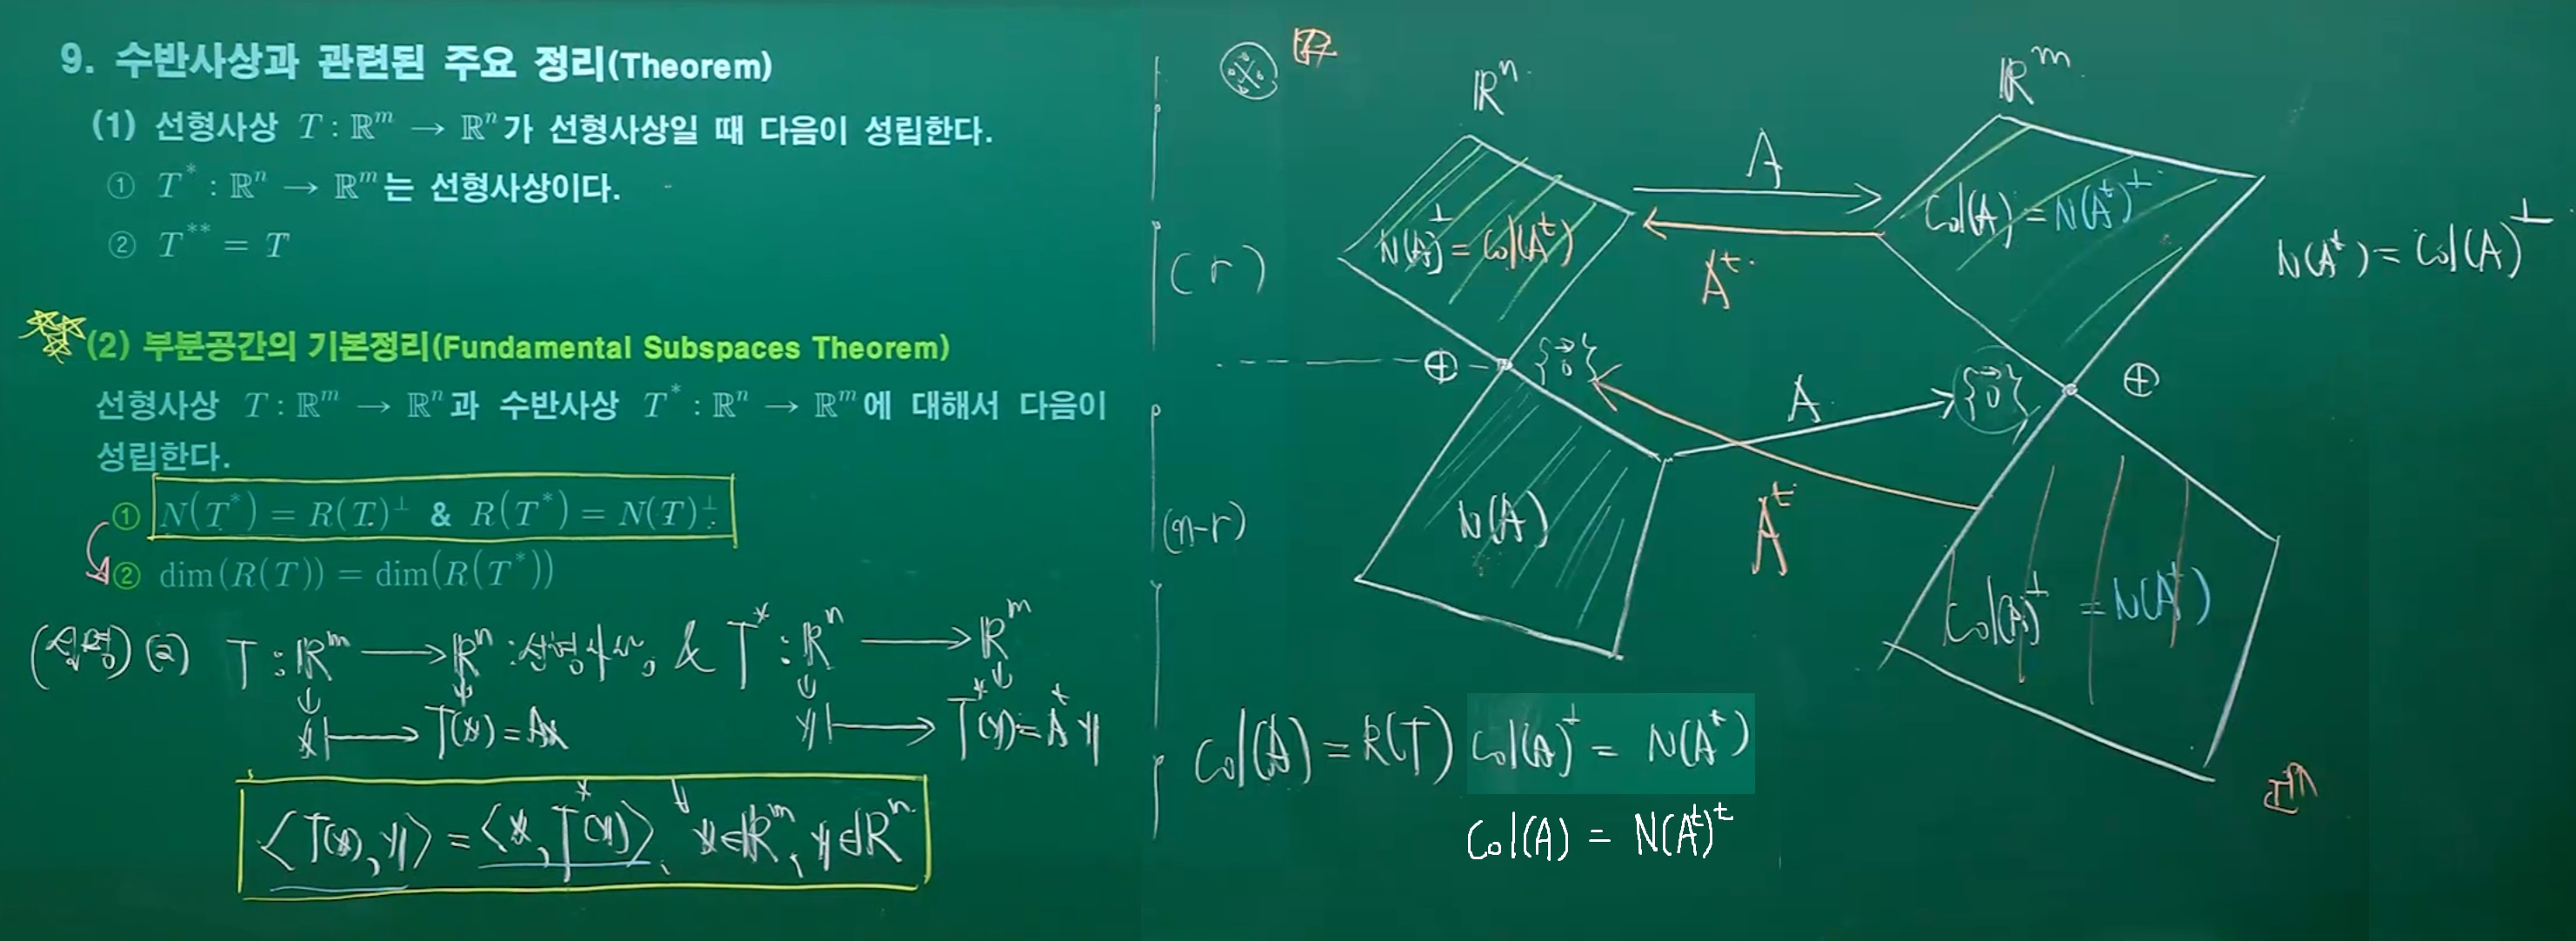 9. 수반사상과 관련된 주요 정리(Theorem)
(1) 선형사상 T : ℝᵐ → ℝⁿ가 선형사상일 때 다음이 성립한다.
① T* : ℝⁿ → ℝᵐ는 선형사상이다.
② T** = T
(2) 부분공간의 기본정리(Fundamental Subspaces Theorem)
선형사상 T : ℝᵐ → ℝⁿ과 수반사상 T* : ℝⁿ → ℝᵐ에 대해서 다음이
성립한다.
① N(T*) = R(T)^⊥ & R(T*) = N(T)^⊥
② dim(R(T)) = dim(R(T*))
(설명) (2) T : ℝᵐ → ℝⁿ : 선형사상, & T* : ℝⁿ → ℝᵐ
x ↦ T(x) = Ax
y ↦ T*(y) = A*y
⟨T(x), y⟩ = ⟨x, T*(y)⟩, ∀x∈ℝᵐ, y∈ℝⁿ
ℝⁿ
ℝᵐ
A
N(A)^⊥ = Col(Aᵗ)
Col(A) = N(Aᵗ)^⊥
N(Aᵗ) = Col(A)^⊥
Aᵗ
(r)
⊕
{0⃗}
A
{0⃗}
⊕
(n-r)
N(A)
Aᵗ
Col(A)^⊥ = N(Aᵗ)
Col(A) = R(T)
Col(A)^⊥ = N(Aᵗ)
Col(A) = N(Aᵗ)ᵗ